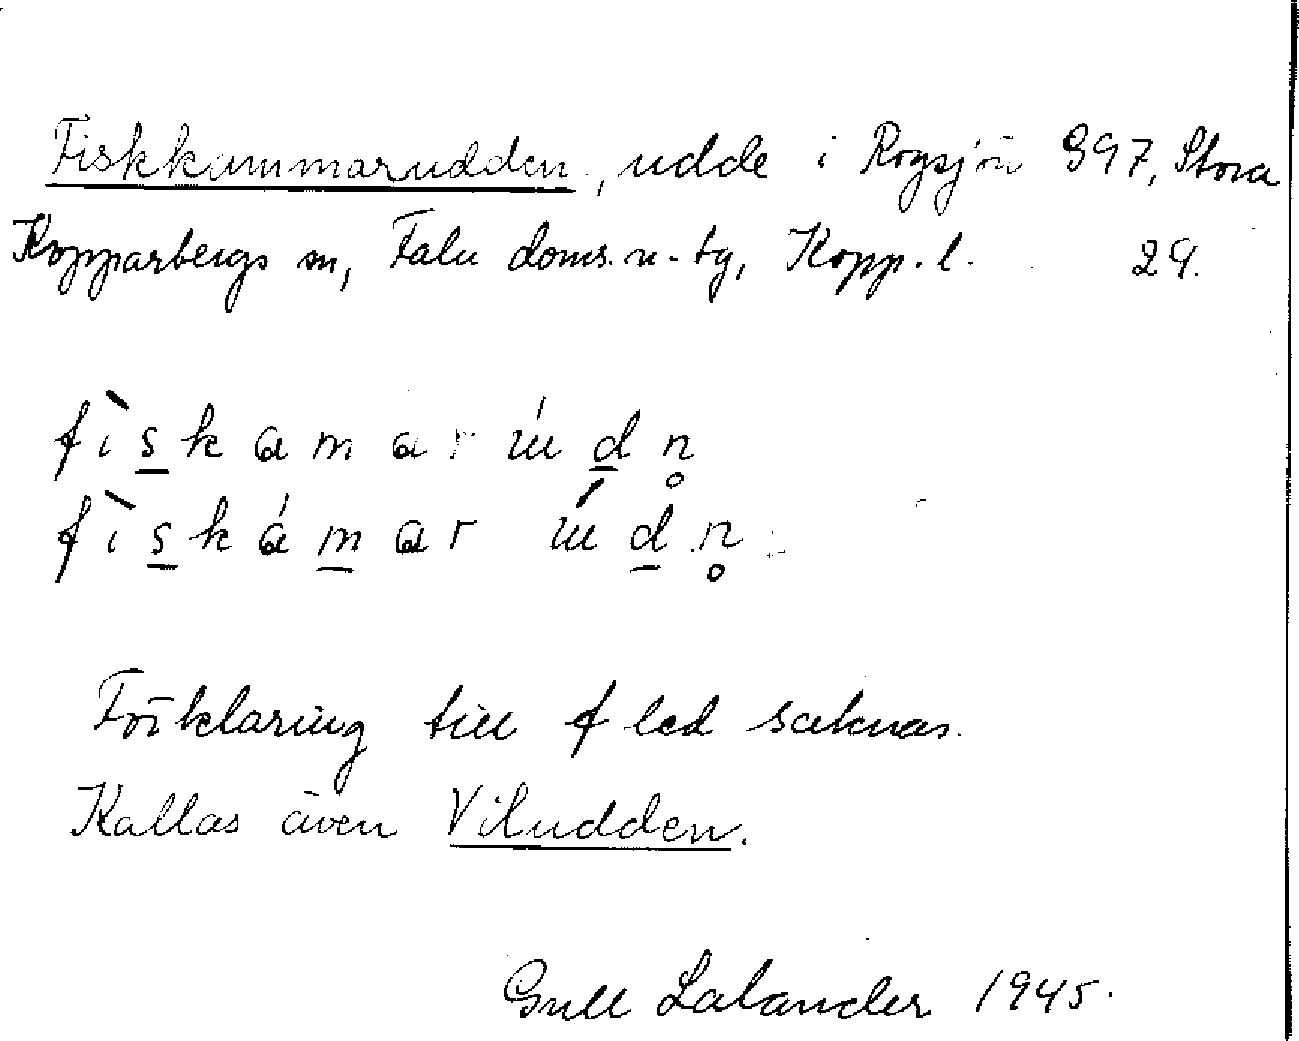 Fiskkammarudden, udde i Rogsjön 997, Stora
Kopparbergs sn, Falu doms. n. tg, Kopp. l. 29.
fìs̲kɑmɑr úd̲n̥
fìs̲kɑ́m̲ɑr úd̲n̥
Förklaring till f led saknas.
Kallas även Viludden.
Gull Lalander 1945.